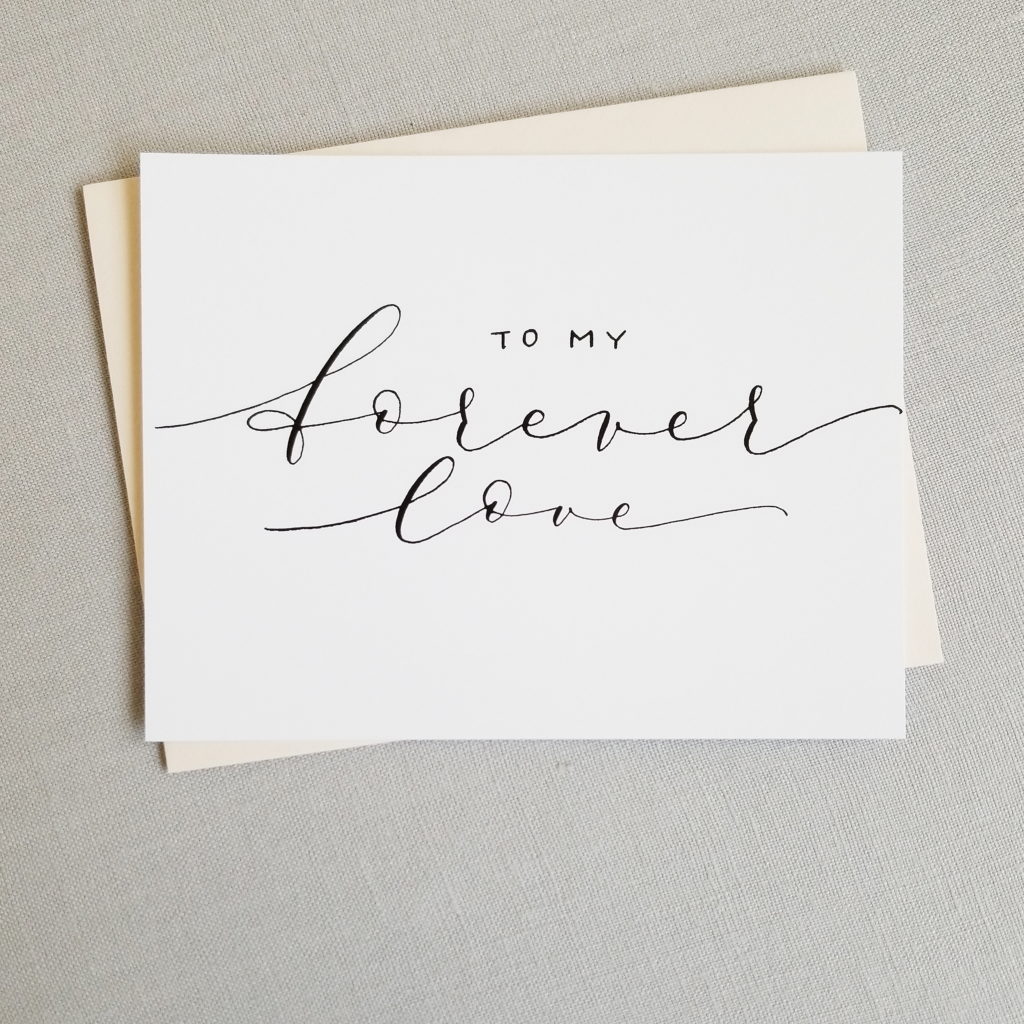 TO MY
forever
love